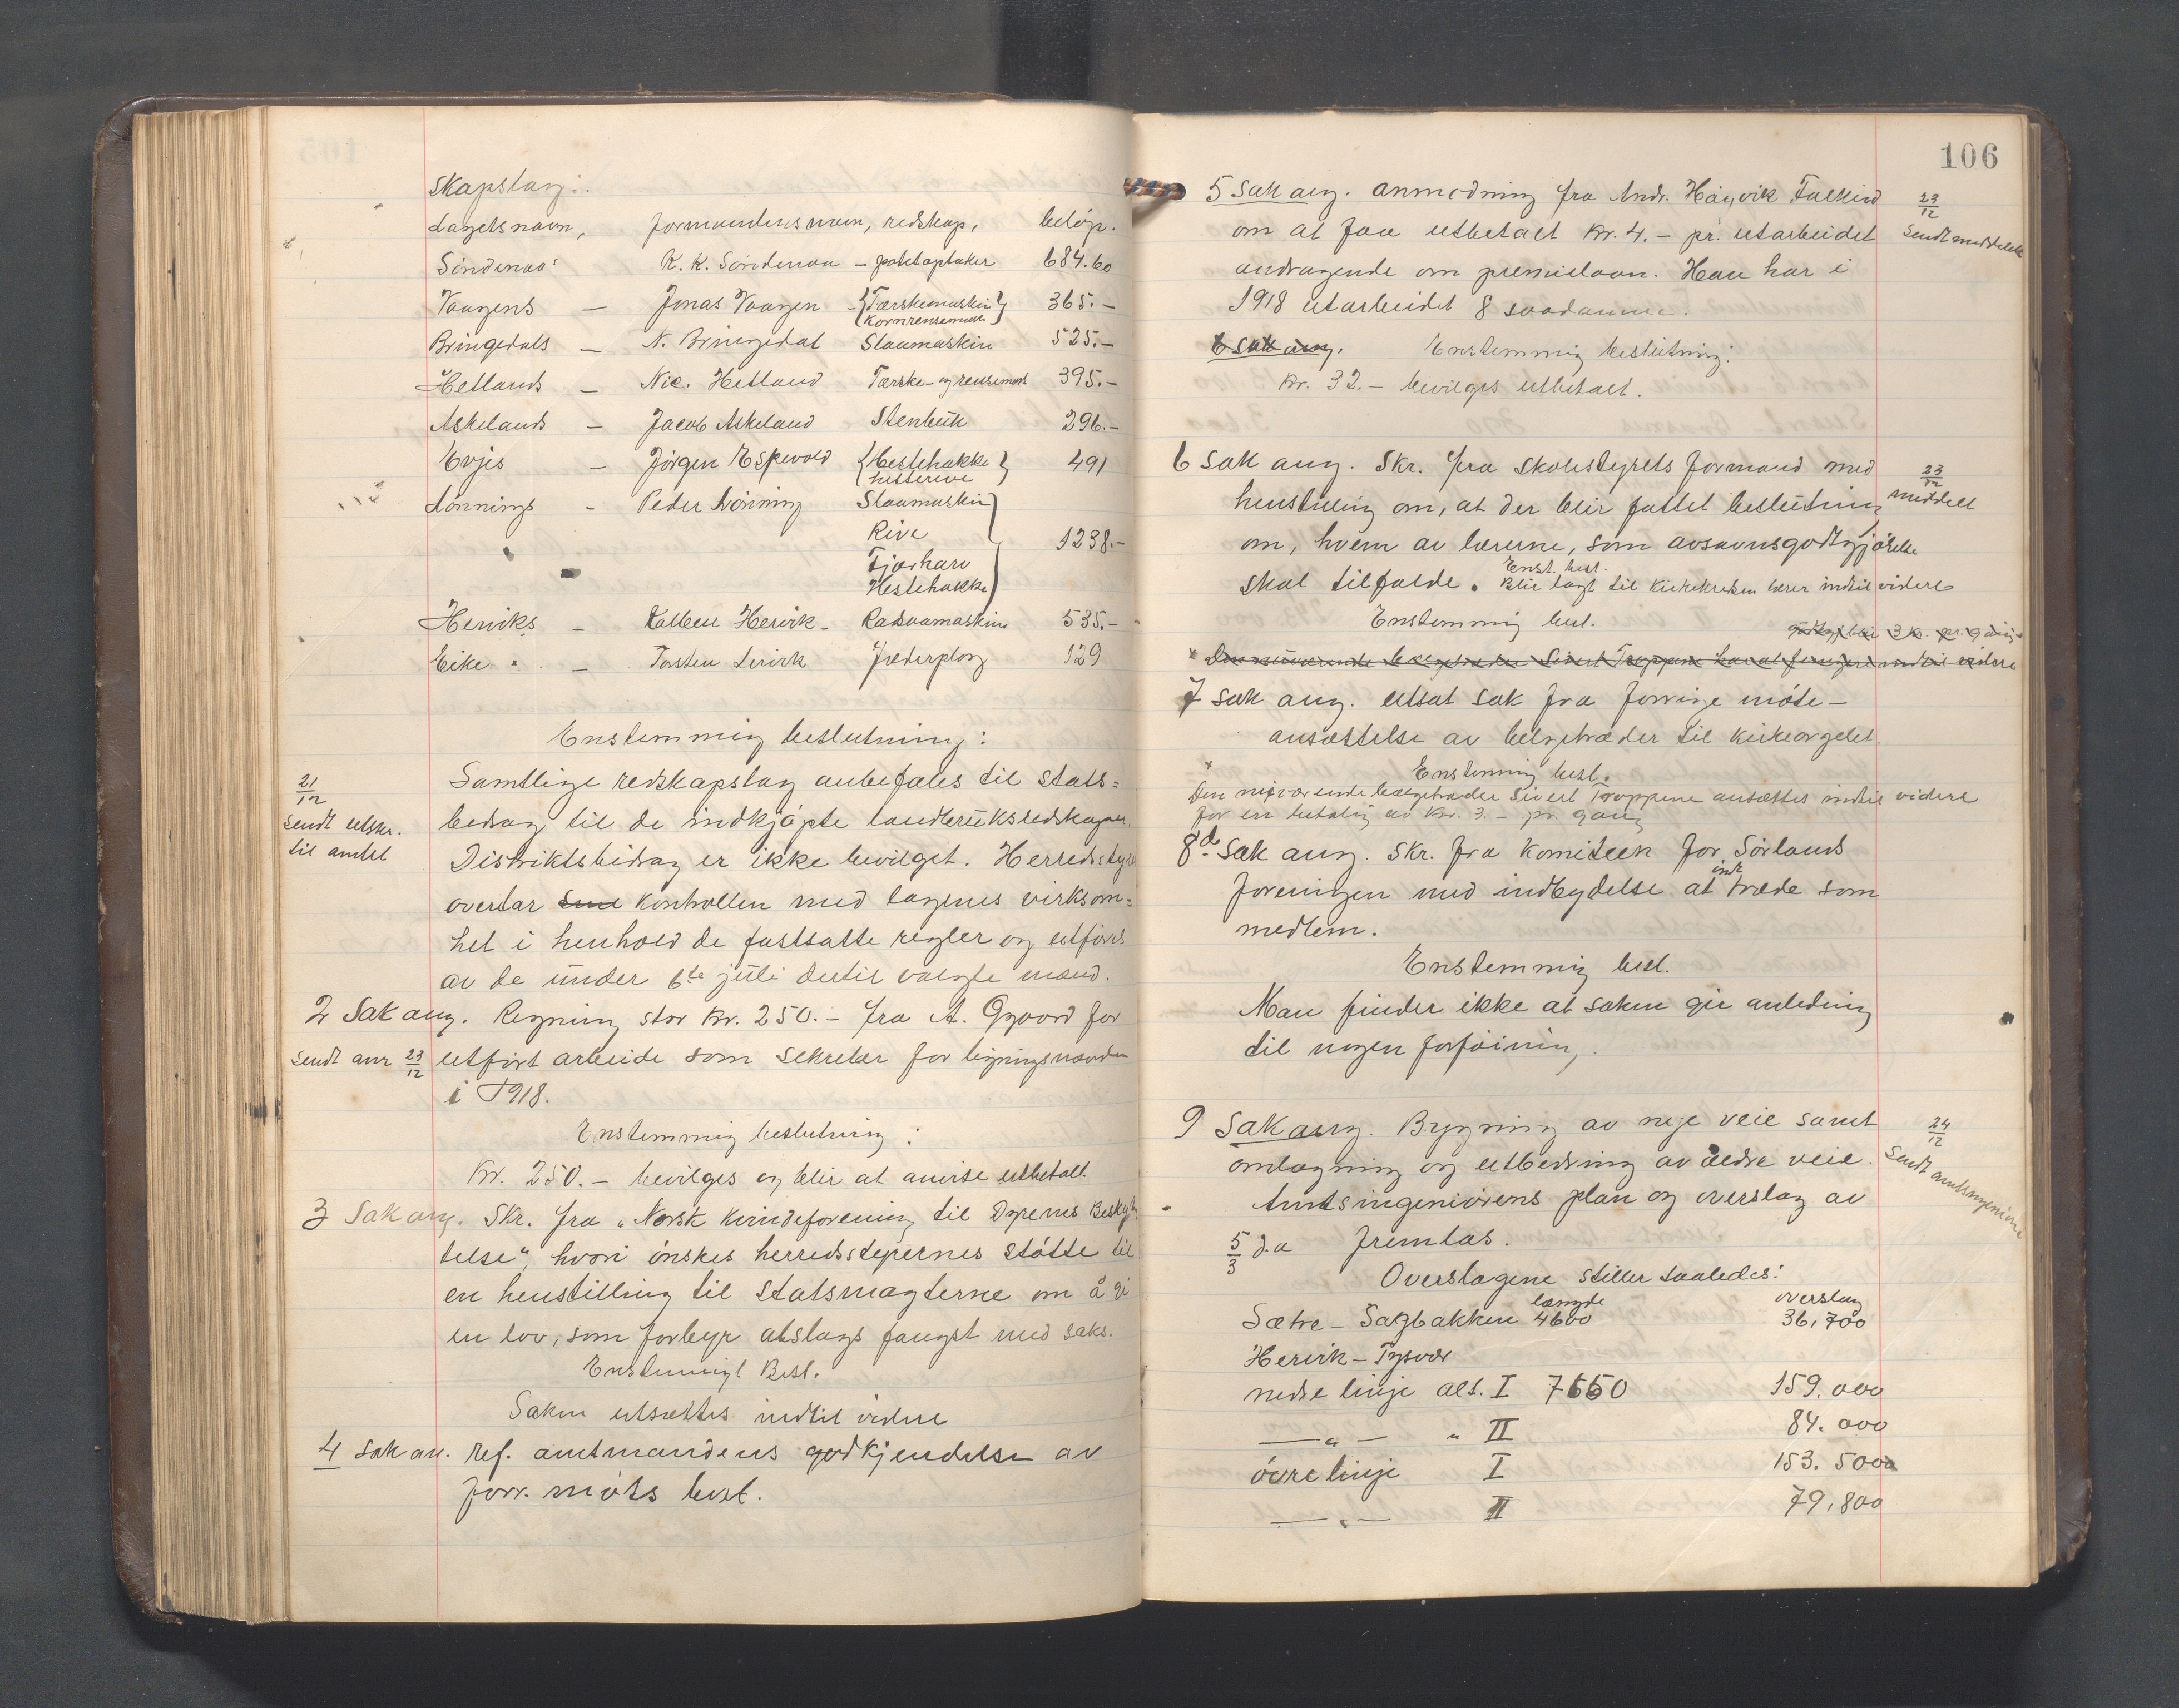 skapslag:
Lagets navn, formandens navn, redskap, beløp.
Søndenaa K. K. Søndenaa – potetoptaker 684.60
Vaagens – Jonas Vaagen – {Tærskemaskin} 365.–
{Kornrensemask}
Bringedals – N. Bringedal Slaamaskin 525.–
Hetlands – Nic. Hetland Tærske- og rensemask 395.–
Askelands – Jacob Askeland Stenbuk 296.–
Evjes – Jørgen Espevold {Hestehakke} 491
{hesterive}
Lønnings – Peder Lønning Slaamaskin
Rive
1238.–
Fjærharv
Hestehakke
Herviks – Kolbeu Hervik – Radsaamaskin 535.–
Eike – Torsten Lervik Fjæderplog 129
Enstemmig beslutning:
21/12
sendt utskr.
til amtet
Samtlige redskapslag anbefales til stats=
bedrag til de indkjøpte landbruksredskaper.
Distriktsbidrag er ikke bevilget. Herredsstyre
overtar kontrollen med lagenes virksom=
het i henhold de fastsatte regler og utføres
av de under 6te juli dertil valgte mænd.
2 Sak ang. Regning stor kr. 250.– fra A. Gjaard for
sendt anv 23/12
utført arbeide som sekretær for ligningsnævnden
i 1918.
Enstemmig beslutning:
Kr. 250.– bevilges og blir at anvise utbetalt.
3 Sak ang. Skr. fra „Norsk kvindeforening til Dyrenes Beskyt
telse“, hvori ønskes herredsstyrernes støtte til
en henstilling til Statsmagterne om å gi
en lov, som forbyr atslags fangst med saks.
Enstemmigt Besl.
Saken utsættes indtil videre
4 Sak an. ref. amtmandens godkjendelse av
forr. møts besl.
106
5 sak ang. anmodning fra Andr. Høyvik Falkeid
23/12
sendt meddelelse
om at faa utbetalt kr. 4.– pr. utarbeidet
andragende om premielaan. Han har i
1918 utarbeidet 8 saadanne.
6 sak ang. Enstemmig beslutning:
kr. 32.– bevilges utbetalt.
6 sak ang. Skr. fra skolestyrets formand med
23/12
meddelt
henstilling om, at der blir fattet beslutning
om, hvem av lærerne, som avsavnsgodtgjørelse
Enst. besl.
skal tilfalde. Blir lagt til kirkekretsen lærer indtil videre
Enstemmig besl.
godtgj. blir 3 kr. pr. gang
* Den nuværende belgetræder Sivert Troppene har at fungere indtil videre
7 sak ang. utsat sak fra forrige møte –
ansættelse av belgetræder til kirkeorgelet.
Enstemmig besl.
*
Den nuværende belgetræder Sivert Troppene ansættes indtil videre
for en betaling av kr. 3.– pr. gang
8de sak ang. skr. fra komiteen for Sørlands
foreningen med indbydelse at indtræde som
medlem.
Enstemmig besl.
Man finder ikke at saken gir anledning
til nogen forføining.
9 Sak ang. Bygning av nye veie samt
24/12
sendt amtsingeniøren
omlægning og utbedring av ældre veie.
Amtsingeniørens plan og overslag av
5/3 d.a fremlas.
Overslagene stiller saaledes:
længde overslag
Sætre – Sagbakken 4600 36,700
Hervik – Tysvær
nedre linje alt. I 7550 159.000
—„— „ II 84.000
øvre linje I 153.500
—„— II 79,800